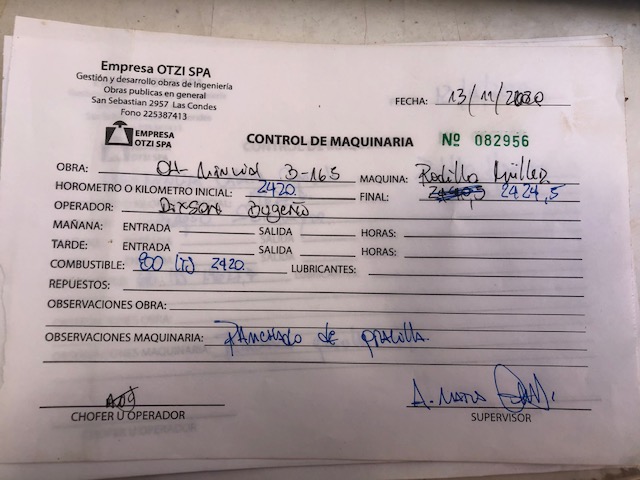 Empresa OTZI SPA
Gestión y desarrollo obras de Ingeniería
Obras publicas en general
San Sebastian 2957 Las Condes
Fono 225387413
FECHA: 13/11/2020
EMPRESA
OTZI SPA
CONTROL DE MAQUINARIA Nº 082956
OBRA: B-163 MAQUINA: Rodillo
HOROMETRO O KILOMETRO INICIAL: 2420 FINAL: 2424,5
OPERADOR:
MAÑANA: ENTRADA SALIDA HORAS:
TARDE: ENTRADA SALIDA HORAS:
COMBUSTIBLE: 80 (lt) 2420 LUBRICANTES:
REPUESTOS:
OBSERVACIONES OBRA:
OBSERVACIONES MAQUINARIA: Planchado de
CHOFER U OPERADOR
SUPERVISOR